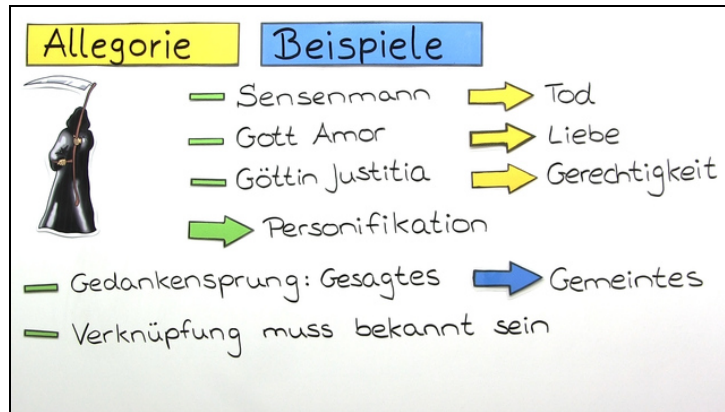 Allegorie Beispiele
– Sensenmann → Tod
– Gott Amor → Liebe
– Göttin Justitia → Gerechtigkeit
→ Personifikation
– Gedankensprung: Gesagtes → Gemeintes
– Verknüpfung muss bekannt sein